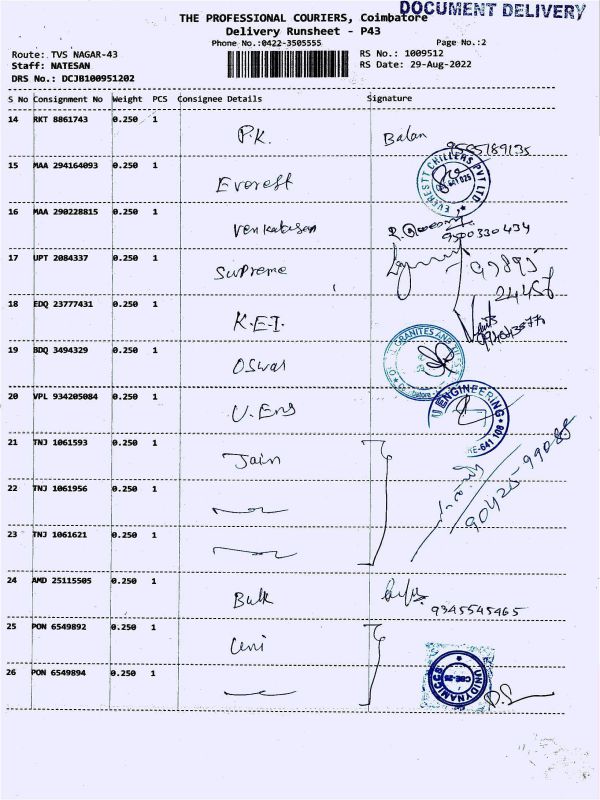 DOCUMENT DELIVERY
THE PROFESSIONAL COURIERS, Coimbatore
Delivery Runsheet - P43
Phone No.:0422-3505555
Page No.:2
Route: TVS NAGAR-43
RS No.: 1009512
Staff: NATESAN
RS Date: 29-Aug-2022
DRS No.: DCJB100951202
S No Consignment No Weight PCS Consignee Details Signature
14 RKT 8861743 0.250 1 P.K. Balan
15 MAA 294164093 0.250 1 Everest EVERESTT CHILLERS PVT LTD
16 MAA 290228815 0.250 1 Venkatesan 9500330434
17 UPT 2084337 0.250 1 Supreme 98895 24457
18 EDQ 23777431 0.250 1 K.E.I.
19 BDQ 3494329 0.250 1 Oswal GRANITES AND
20 VPL 934205084 0.250 1 U.Eng U ENGINEERING 641 108
21 TNJ 1061593 0.250 1 Jain 90425-99085
22 TNJ 1061956 0.250 1
23 TNJ 1061621 0.250 1
24 AMD 25115505 0.250 1 Bulk 9345545465
25 PON 6549892 0.250 1 Uni
26 PON 6549894 0.250 1 UNIDYNAMICS CBE-25